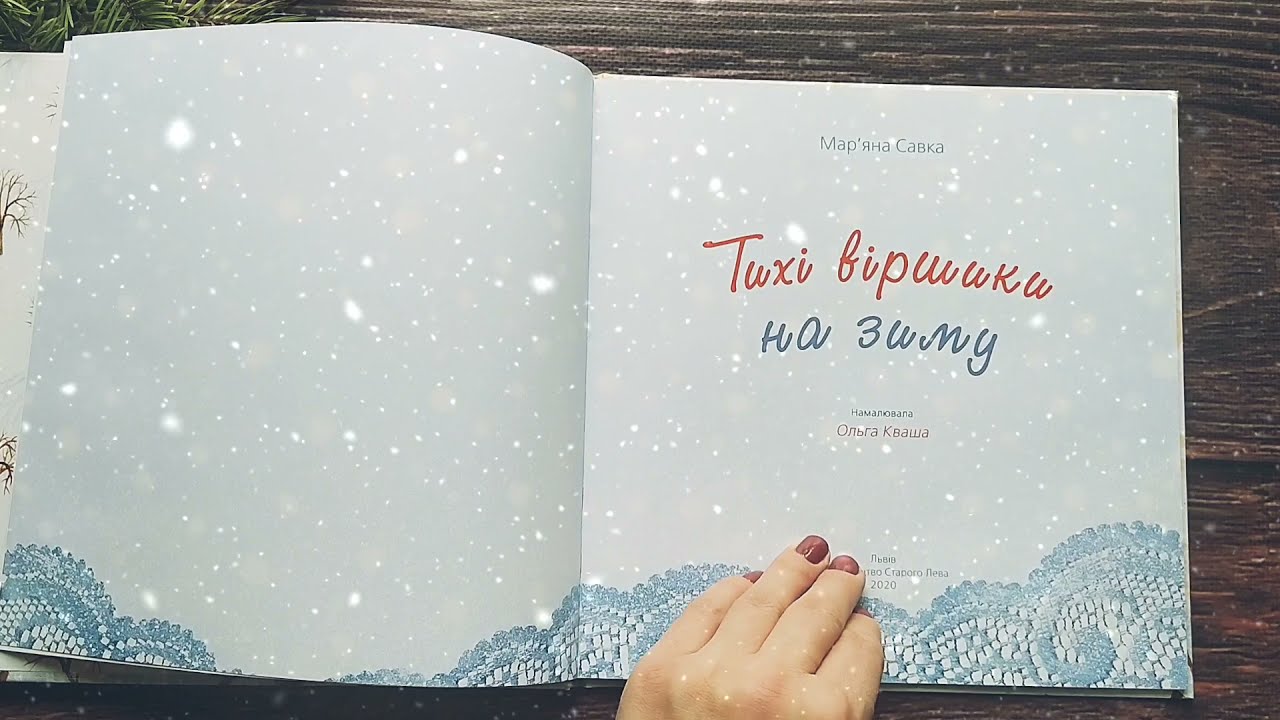 Мар'яна Савка
Тихі віршики
на зиму
Намалювала
Ольга Кваша
Львів
Старого Лева
2020